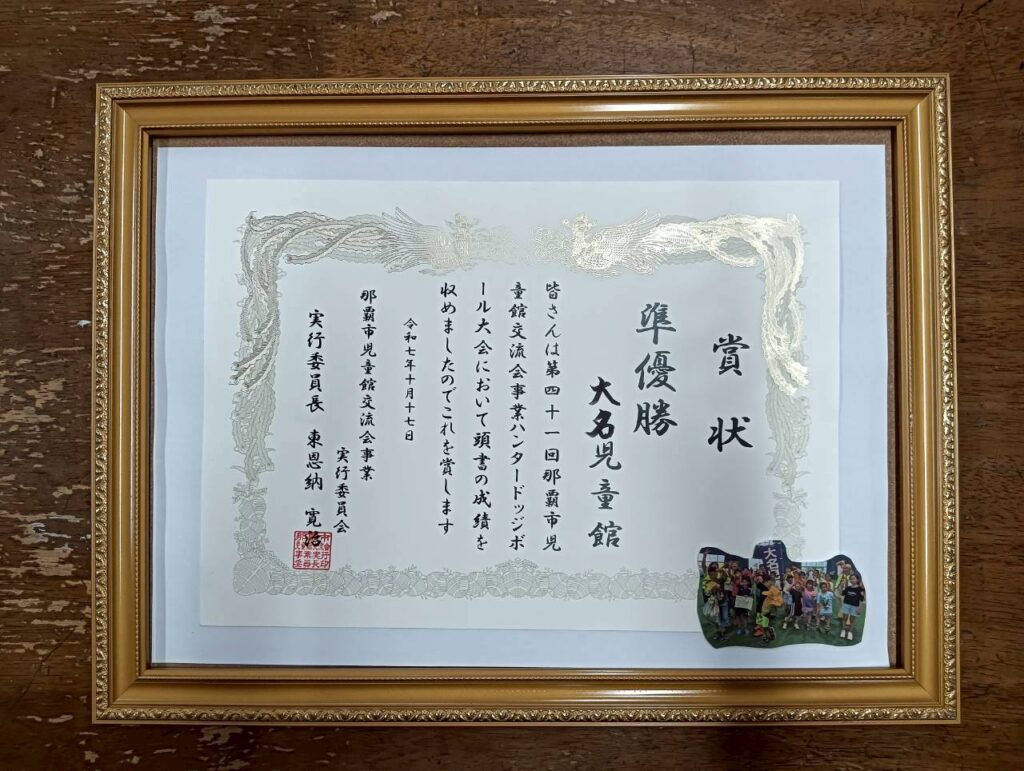 賞状
準優勝
大名児童館
皆さんは第四十一回那覇市児
童館交流会事業ハンタードッジボ
ール大会において頭書の成績を
収めましたのでこれを賞します
令和七年十月十七日
那覇市児童館交流会事業
実行委員会
実行委員長 東恩納 寛治
大名